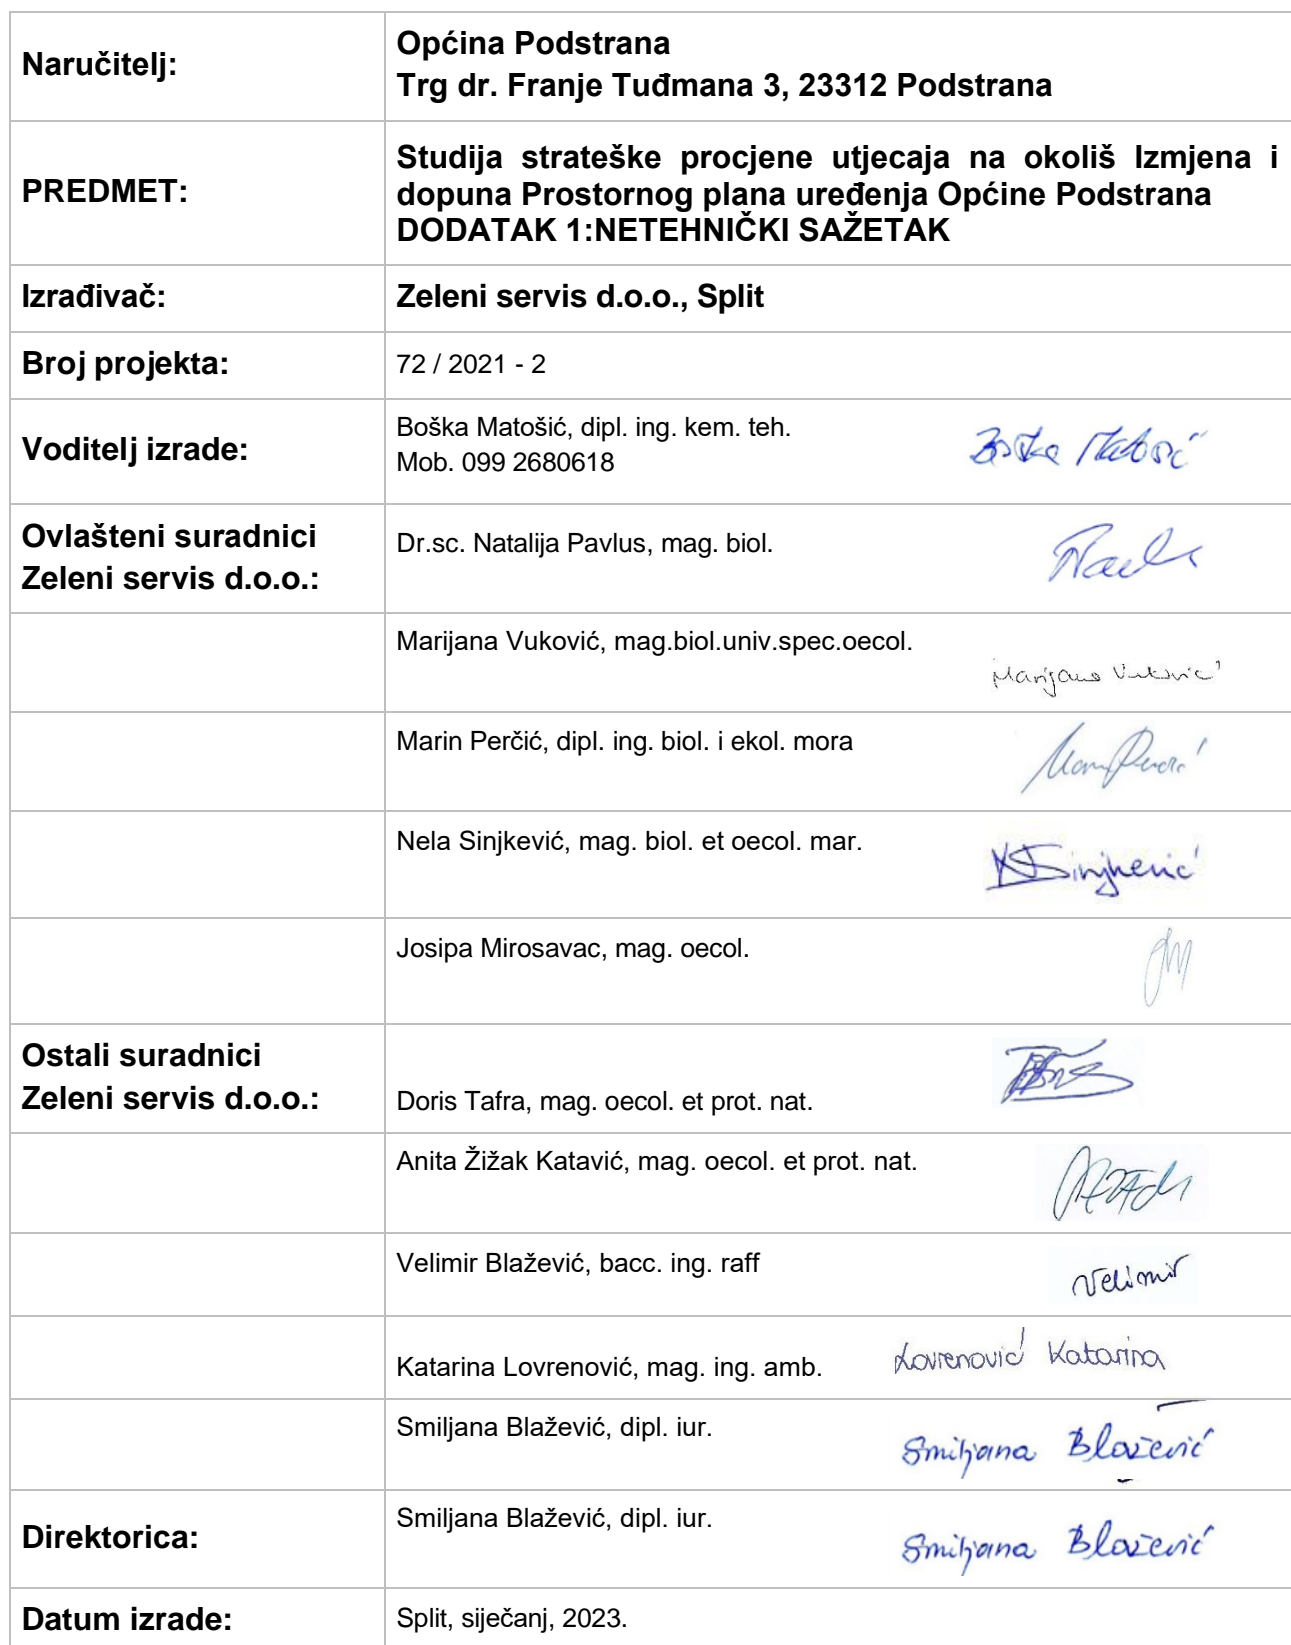 Naručitelj:
Općina Podstrana
Trg dr. Franje Tuđmana 3, 23312 Podstrana
PREDMET:
Studija strateške procjene utjecaja na okoliš Izmjena i
dopuna Prostornog plana uređenja Općine Podstrana
DODATAK 1:NETEHNIČKI SAŽETAK
Izrađivač:
Zeleni servis d.o.o., Split
Broj projekta:
72 / 2021 - 2
Voditelj izrade:
Boška Matošić, dipl. ing. kem. teh.
Mob. 099 2680618
Boška Matošić
Ovlašteni suradnici
Zeleni servis d.o.o.:
Dr.sc. Natalija Pavlus, mag. biol.
Marijana Vuković, mag.biol.univ.spec.oecol.
Marijana Vuković
Marin Perčić, dipl. ing. biol. i ekol. mora
Nela Sinjkević, mag. biol. et oecol. mar.
Sinjkević
Josipa Mirosavac, mag. oecol.
Ostali suradnici
Zeleni servis d.o.o.:
Doris Tafra, mag. oecol. et prot. nat.
Anita Žižak Katavić, mag. oecol. et prot. nat.
Velimir Blažević, bacc. ing. raff
Velimir
Katarina Lovrenović, mag. ing. amb.
Lovrenović Katarina
Smiljana Blažević, dipl. iur.
Smiljana Blažević
Direktorica:
Smiljana Blažević, dipl. iur.
Smiljana Blažević
Datum izrade:
Split, siječanj, 2023.